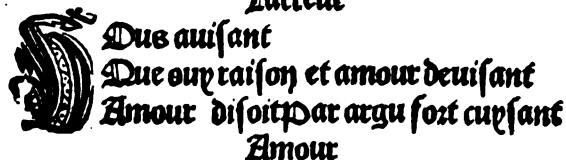 Lacteur
VOus auiſant
Que ouy raiſon et amour deuiſant
Amour diſoit par argu fort cuyſant
Amour